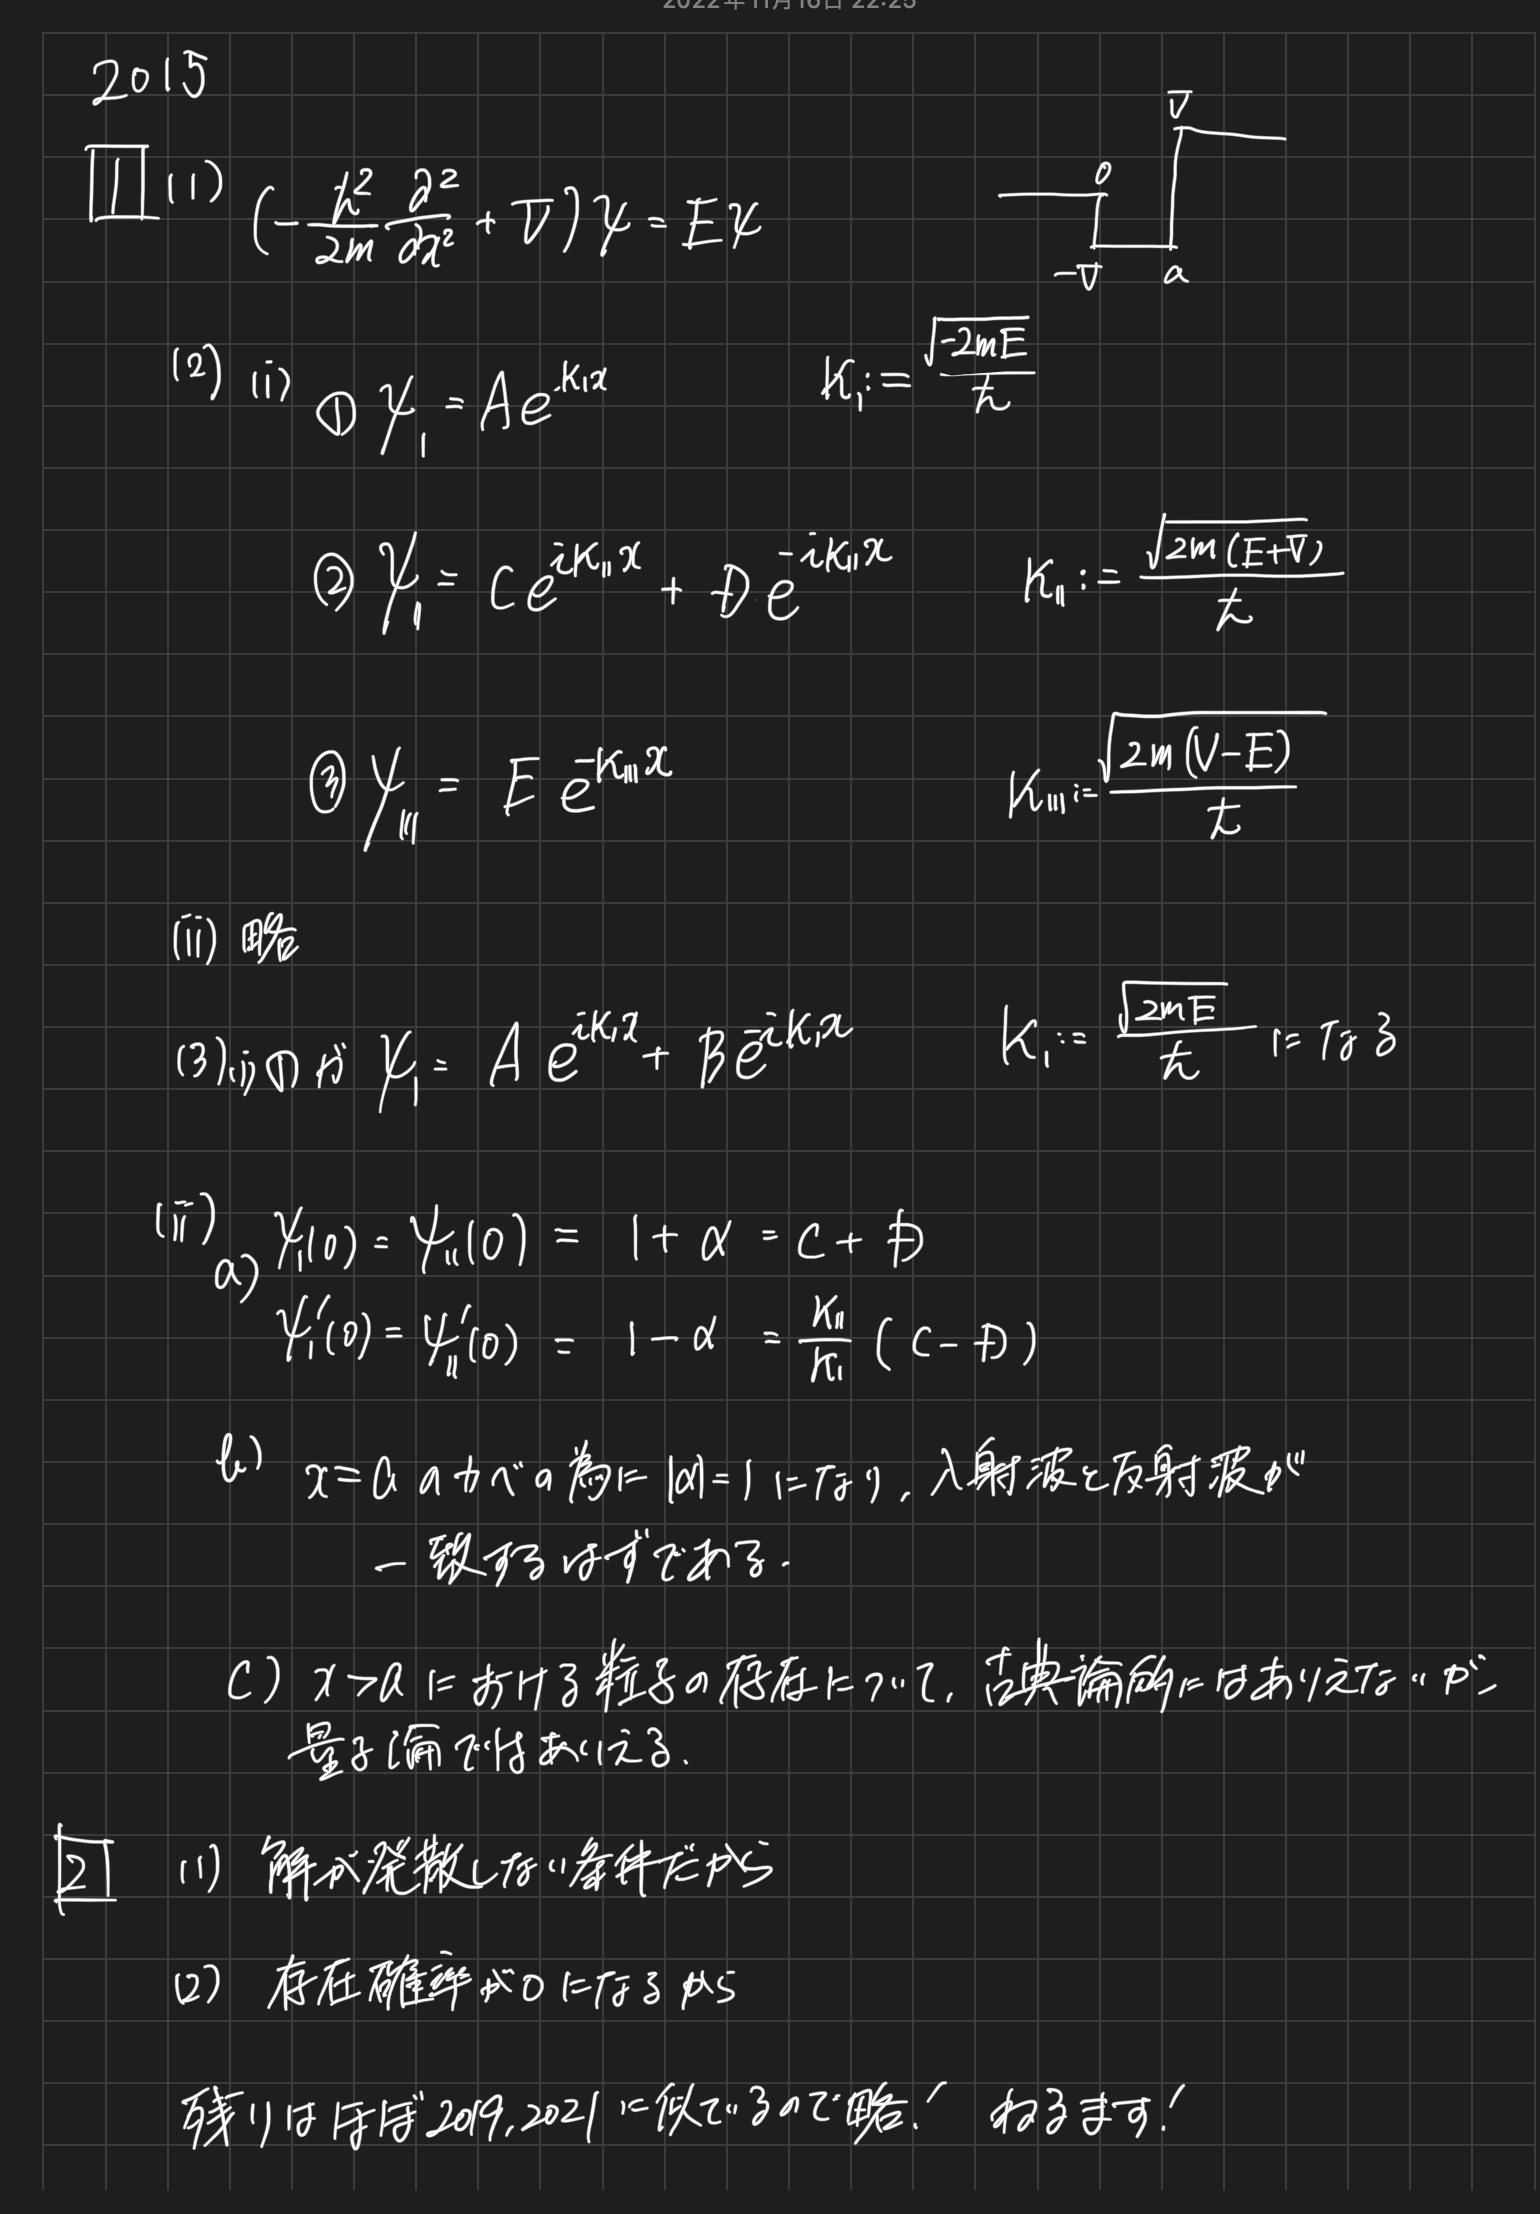 2022年11月16日 22:25
2015
1 (1) (-ℏ²/2m d²/dx² + V)ψ = Eψ
V
0
-V a
(2) (i) ① ψ_I = Ae^{K_I x} K_I := √(-2mE)/ℏ
② ψ_II = Ce^{iK_II x} + De^{-iK_II x} K_II := √(2m(E+V))/ℏ
③ ψ_III = Ee^{-K_III x} K_III := √(2m(V-E))/ℏ
(ii) 略
(3) (i) ① が ψ_I = Ae^{iK_I x} + Be^{-iK_I x} K_I := √(2mE)/ℏ になる
(ii)
a) ψ_I(0) = ψ_II(0) = 1 + α = C + D
ψ_I'(0) = ψ_II'(0) = 1 - α = K_II/K_I (C - D)
b) x=aのカベの為に|α|=1になり、入射波と反射波が
一致するはずである.
c) x>aにおける粒子の存在について、古典論的にはありえないが、
量子論ではありえる.
2 (1) 解が発散しない条件だから
(2) 存在確率が0になるから
残りはほぼ2019,2021に似ているので略! ねるます!